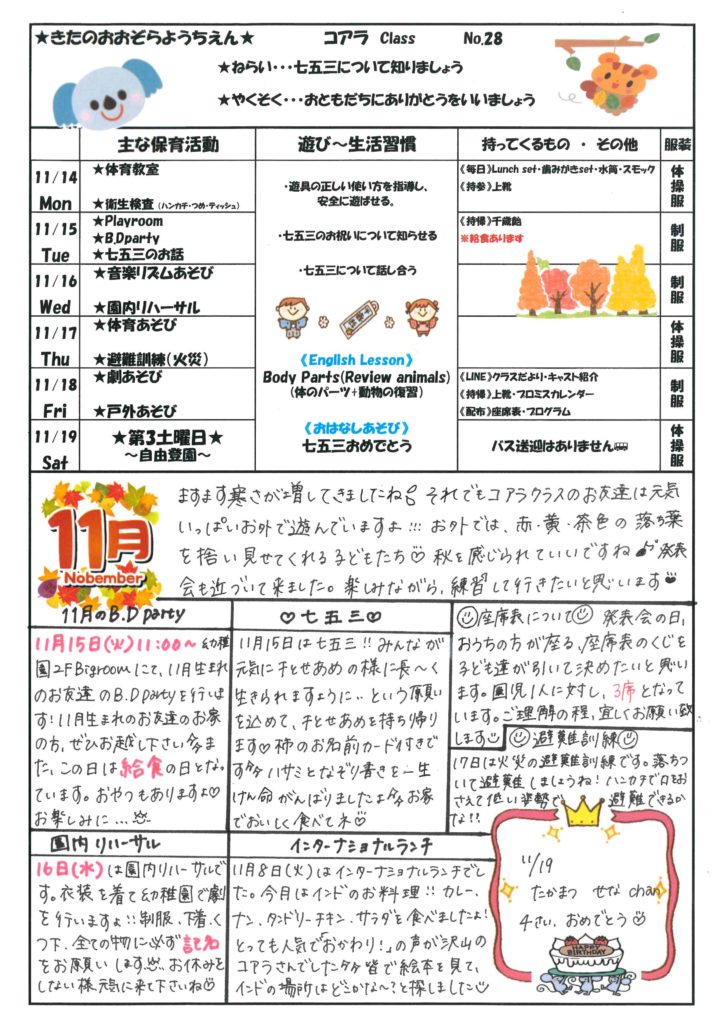 ★きたのおおぞらようちえん★ コアラ Class No.28
★ねらい・・・七五三について知りましょう
★やくそく・・・おともだちにありがとうをいいましょう
主な保育活動 遊び～生活習慣 持ってくるもの ・ その他 服装
11/14 Mon
★体育教室
★衛生検査(ハンカチ・つめ・ティッシュ)
《毎日》Lunch set・歯みがきset・水筒・スモック
《持参》上靴
体操服
11/15 Tue
★Playroom
★B.Dparty
★七五三のお話
《持帰》千歳飴
※給食あります
制服
11/16 Wed
★音楽リズムあそび
★園内リハーサル
制服
11/17 Thu
★体育あそび
★避難訓練(火災)
体操服
11/18 Fri
★劇あそび
★戸外あそび
《LINE》クラスだより・キャスト紹介
《持帰》上靴・プロミスカレンダー
《配布》座席表・プログラム
制服
11/19 Sat
★第3土曜日★
～自由登園～
バス送迎はありません
体操服
・遊具の正しい使い方を指導し、
安全に遊ばせる。
・七五三のお祝いについて知らせる
・七五三について話し合う
千歳飴
《English Lesson》
Body Parts(Review animals)
(体のパーツ+動物の復習)
《おはなしあそび》
七五三おめでとう
11月
Nobember
ますます寒さが増してきましたね それでもコアラクラスのお友達は元気
いっぱいお外で遊んでいますよ!!! お外では、赤・黄・茶色の落ち葉
を拾い見せてくれる子どもたち♡ 秋を感じられていいですね♪ 発表
会も近づいて来ました。楽しみながら、練習して行きたいと思います♥
11月のB.D party
11月15日(火)11:00～幼稚
園2F Bigroomにて、11月生まれ
のお友達のB.D partyを行いま
す!11月生まれのお友達のお家
の方、ぜひお越し下さい。ま
た、この日は給食の日となっ
ています。おやつもありますよ♡
お楽しみに…
♡七五三♡
11月15日は七五三!!みんなが
元気に千とせあめの様に長～く
生きられますように…という願い
を込めて、千とせあめを持ち帰り
ます♡柿のお名前カード付きで
す ハサミとなぞり書きを一生
けん命がんばりましたよ お家
でおいしく食べてネ♡
☺座席表について☺ 発表会の日、
おうちの方が座る、座席表のくじを
子ども達が引いて決めたいと思い
ます。園児1人に対し、3席となって
います。ご理解の程、宜しくお願い致
します☺
☺避難訓練☺
17日は火災の避難訓練です。落ちつ
いて避難しましょうね!ハンカチで口をお
さえて低い姿勢で 避難できるか
な!?
園内リハーサル
16日(水)は園内リハーサルで
す。衣装を着て幼稚園で劇
を行いますよ!!制服、下着、く
つ下、全ての物に必ず記名
をお願いします。お休みを
しない様、元気に来て下さいね
インターナショナルランチ
11月8日(火)はインターナショナルランチでし
た。今月はインドのお料理!!カレー、
ナン、タンドリーチキン、サラダを食べましたよ!
とっても人気で「おかわり!」の声が沢山の
コアラさんでした 皆で絵本を見て、
インドの場所はどこかな～?と探しました☺
11/19
たかまつ せな chan
4さい、おめでとう☺
HAPPY BIRTHDAY